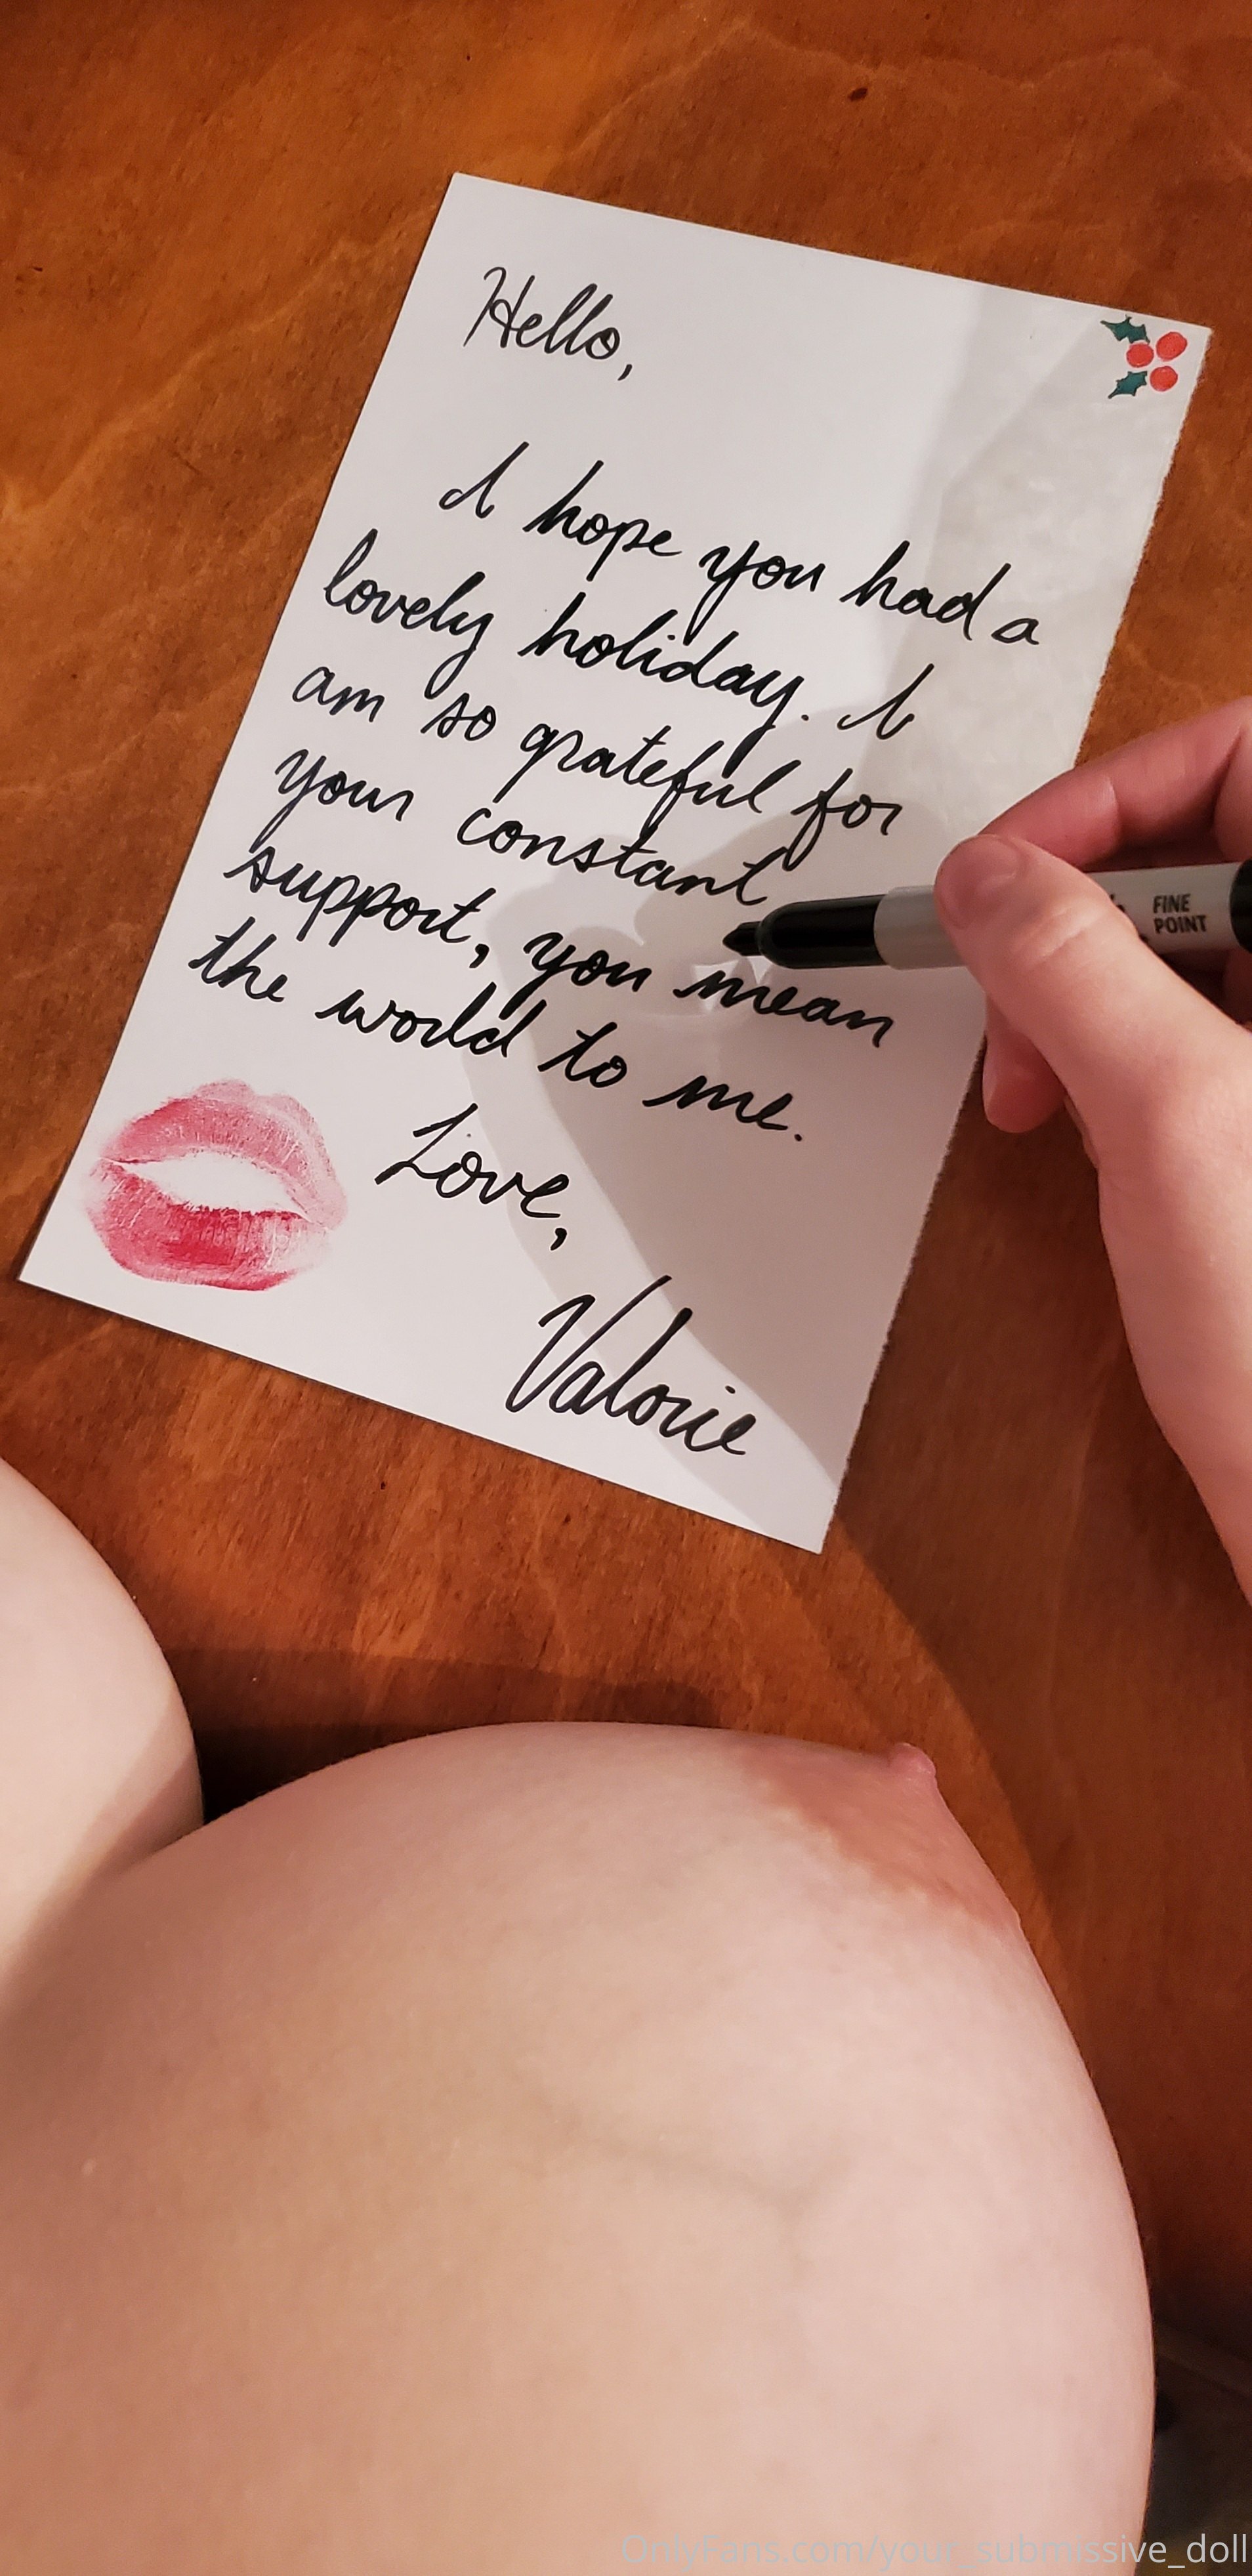 Hello,
I hope you had a
lovely holiday. I
am so grateful for
your constant
support, you mean
the world to me.
Love,
Valorie
FINE
POINT
OnlyFans.com/your_submissive_doll